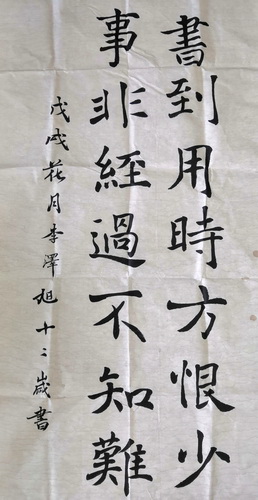 書到用時方恨少
事非經過不知難
戊戌花月李澤旭十二歲書